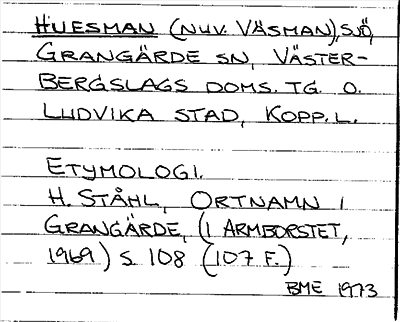 HUESMAN (NUV. VÄSMAN), SJÖ,
GRANGÄRDE SN, VÄSTER-
BERGSLAGS DOMS. TG. O.
LUDVIKA STAD, KOPP. L.
ETYMOLOGI.
H. STÅHL, ORTNAMN I
GRANGÄRDE, (I ARMBORSTET,
1969) S. 108 (107 F.)
BME 1973